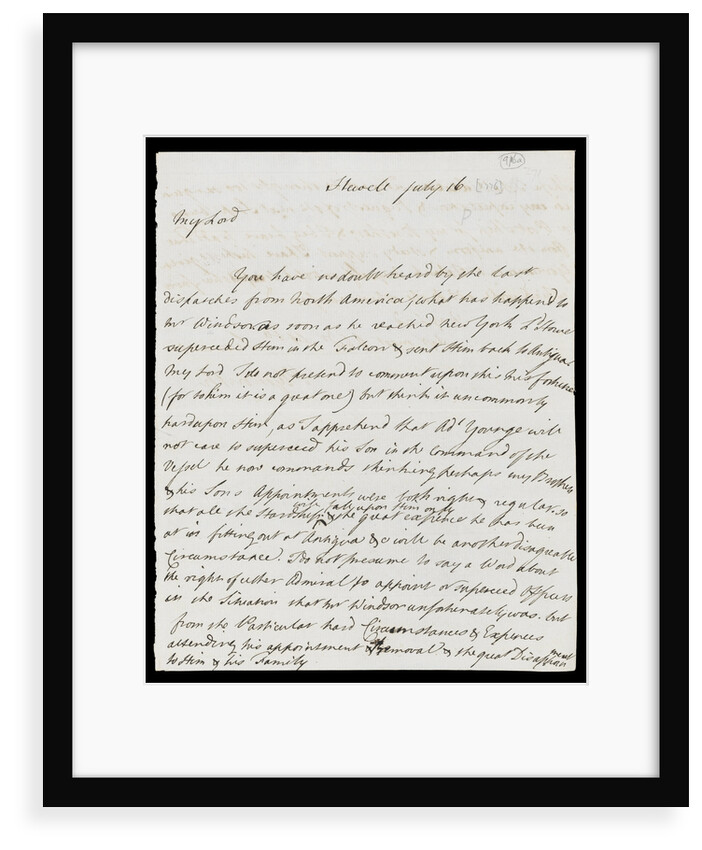 9/60
July 16 [1776]
My Lord
You have no doubt heard by the last
dispatches from North America, what has happend to
Mr Windsor as soon as he reached New York Ld Howe
superceded Him in the Falcon & sent Him back to Antigua.
My Lord I do not pretend to comment upon this Misfortune
(for to him it is a great one) but think it uncommonly
hard upon Him, as I apprehend that Adl Younge will
not care to superceed his Son in the Command of the
Vessel he now commands thinking perhaps my Brothers
& his Sons Appointments were both right & regular, so
will fall upon Him only
that all the Hardship & the great expence he has been
at in fitting out at Antigua &c will be another disagreable
Circumstance. I do not presume to say a Word about
the right of either Admiral to appoint or superceed Officers
in the Situation that Mr Windsor unfortunately was. but
from the Particular hard Circumstances & Expences
attending his appointment & Removal & the great Disappointment
to Him & his Family